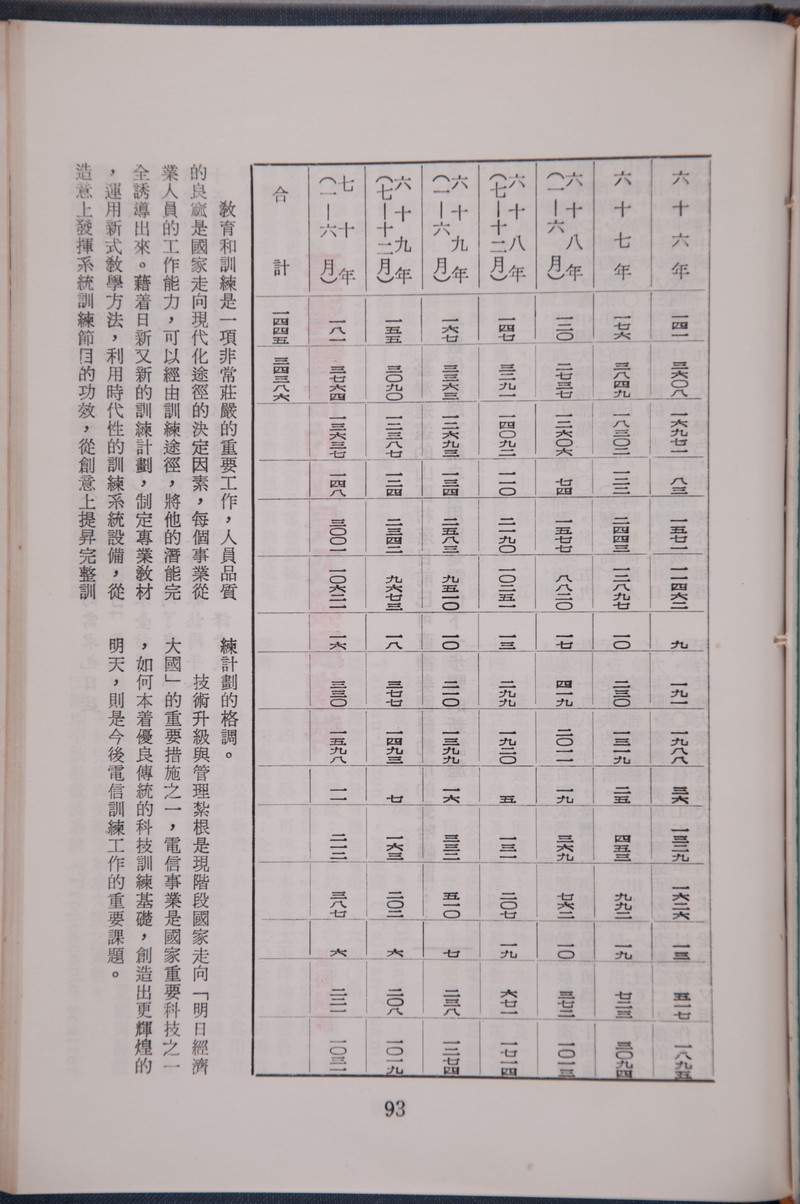 六十六年 一四一 三六〇八 一六九七一 八三 一五七一 一一四六二 九 一九一 一九八八 三六 一三二九 一六二六 一三 五一七 一八九五
六十七年 一七六 三八四九 一八三〇二 一二二 二四四三 一二八九七 一〇 二三〇 一三一九 二五 四五三 九九二 一九 七二三 三〇九四
六十八年(一—六月) 一二〇 二七三七 一二六〇六 七四 一五七七 八八二〇 一七 四一九 二〇一一 一九 三六九 七六二 一〇 三七二 一〇一三
六十八年(七—十二月) 一四七 三二九一 一四〇九二 一一〇 二一九〇 一〇二五一 一三 二九九 一九二〇 五 一三一 二〇七 一九 六七一 一七一四
六十九年(一—六月) 一六七 三三六三 一二六九三 一三四 二五八三 九五一〇 一〇 二一〇 一三九九 一六 三三二 五一〇 七 二三八 一二七四
六十九年(七—十二月) 一五五 三〇九〇 一二三八七 一二四 二三四二 九六七三 一八 三七七 一四九三 七 一六三 二〇二 六 二〇八 一〇一九
七十年(一—六月) 一八一 三七六四 一三六三七 一四八 三〇〇一 一〇六二一 一六 三三〇 一五九八 一一 二一二 三八七 六 二二一 一〇三一
合計 一四四五 三四三八六
教育和訓練是一項非常莊嚴的重要工作，人員品質
的良窳是國家走向現代化途徑的決定因素，每個事業從
業人員的工作能力，可以經由訓練途徑，將他的潛能完
全誘導出來。藉着日新又新的訓練計劃，制定專業教材
，運用新式教學方法，利用時代性的訓練系統設備，從
造意上發揮系統訓練節目的功效，從創意上提昇完整訓
練計劃的格調。
技術升級與管理紮根是現階段國家走向「明日經濟
大國」的重要措施之一，電信事業是國家重要科技之一
，如何本着優良傳統的科技訓練基礎，創造出更輝煌的
明天，則是今後電信訓練工作的重要課題。
93